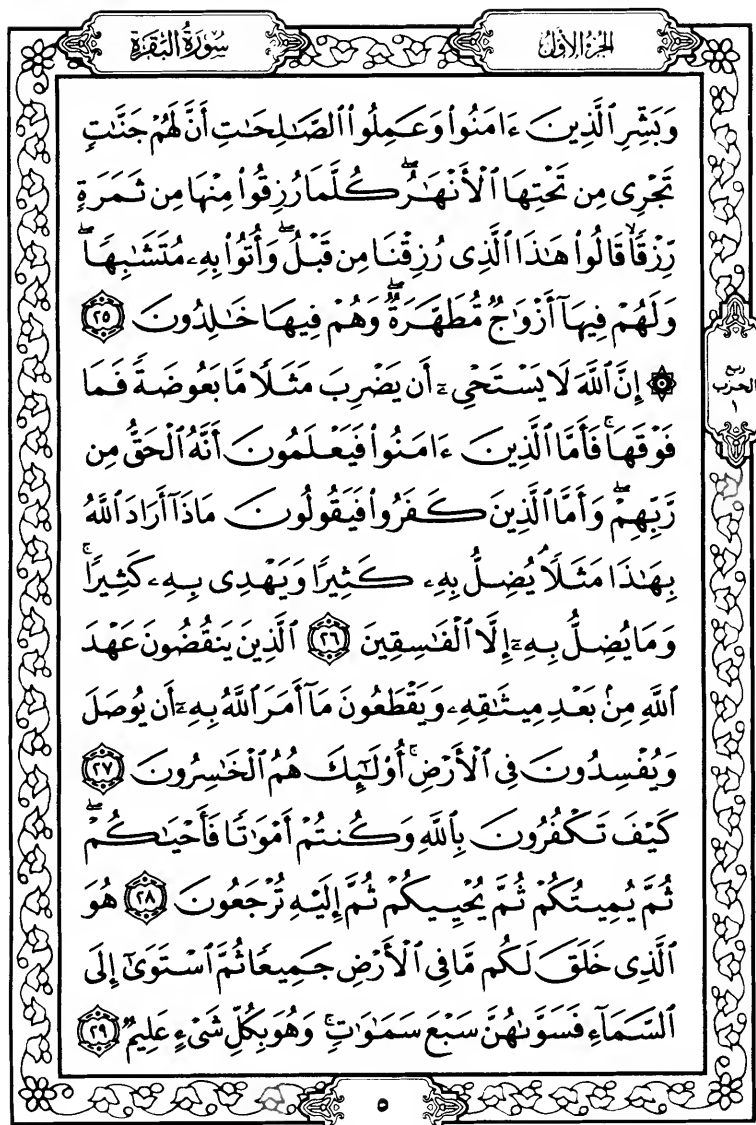 سُورَةُ البَقَرَةِ
الجُزءُ الأَوَّلُ
وَبَشِّرِ ٱلَّذِينَ ءَامَنُوا۟ وَعَمِلُوا۟ ٱلصَّـٰلِحَـٰتِ أَنَّ لَهُمْ جَنَّـٰتٍ
تَجْرِى مِن تَحْتِهَا ٱلْأَنْهَـٰرُ ۖ كُلَّمَا رُزِقُوا۟ مِنْهَا مِن ثَمَرَةٍ
رِّزْقًا ۙ قَالُوا۟ هَـٰذَا ٱلَّذِى رُزِقْنَا مِن قَبْلُ ۖ وَأُتُوا۟ بِهِۦ مُتَشَـٰبِهًا ۖ
وَلَهُمْ فِيهَآ أَزْوَٰجٌ مُّطَهَّرَةٌ ۖ وَهُمْ فِيهَا خَـٰلِدُونَ ٢٥
۞ إِنَّ ٱللَّهَ لَا يَسْتَحْىِۦٓ أَن يَضْرِبَ مَثَلًا مَّا بَعُوضَةً فَمَا
فَوْقَهَا ۚ فَأَمَّا ٱلَّذِينَ ءَامَنُوا۟ فَيَعْلَمُونَ أَنَّهُ ٱلْحَقُّ مِن
رَّبِّهِمْ ۖ وَأَمَّا ٱلَّذِينَ كَفَرُوا۟ فَيَقُولُونَ مَاذَآ أَرَادَ ٱللَّهُ
بِهَـٰذَا مَثَلًا ۘ يُضِلُّ بِهِۦ كَثِيرًا وَيَهْدِى بِهِۦ كَثِيرًا ۚ
وَمَا يُضِلُّ بِهِۦٓ إِلَّا ٱلْفَـٰسِقِينَ ٢٦ ٱلَّذِينَ يَنقُضُونَ عَهْدَ
ٱللَّهِ مِنۢ بَعْدِ مِيثَـٰقِهِۦ وَيَقْطَعُونَ مَآ أَمَرَ ٱللَّهُ بِهِۦٓ أَن يُوصَلَ
وَيُفْسِدُونَ فِى ٱلْأَرْضِ ۚ أُو۟لَـٰٓئِكَ هُمُ ٱلْخَـٰسِرُونَ ٢٧
كَيْفَ تَكْفُرُونَ بِٱللَّهِ وَكُنتُمْ أَمْوَٰتًا فَأَحْيَـٰكُمْ ۖ
ثُمَّ يُمِيتُكُمْ ثُمَّ يُحْيِيكُمْ ثُمَّ إِلَيْهِ تُرْجَعُونَ ٢٨ هُوَ
ٱلَّذِى خَلَقَ لَكُم مَّا فِى ٱلْأَرْضِ جَمِيعًا ثُمَّ ٱسْتَوَىٰٓ إِلَى
ٱلسَّمَآءِ فَسَوَّىٰهُنَّ سَبْعَ سَمَـٰوَٰتٍ ۚ وَهُوَ بِكُلِّ شَىْءٍ عَلِيمٌ ٢٩
ربع
الحزب
١
٥